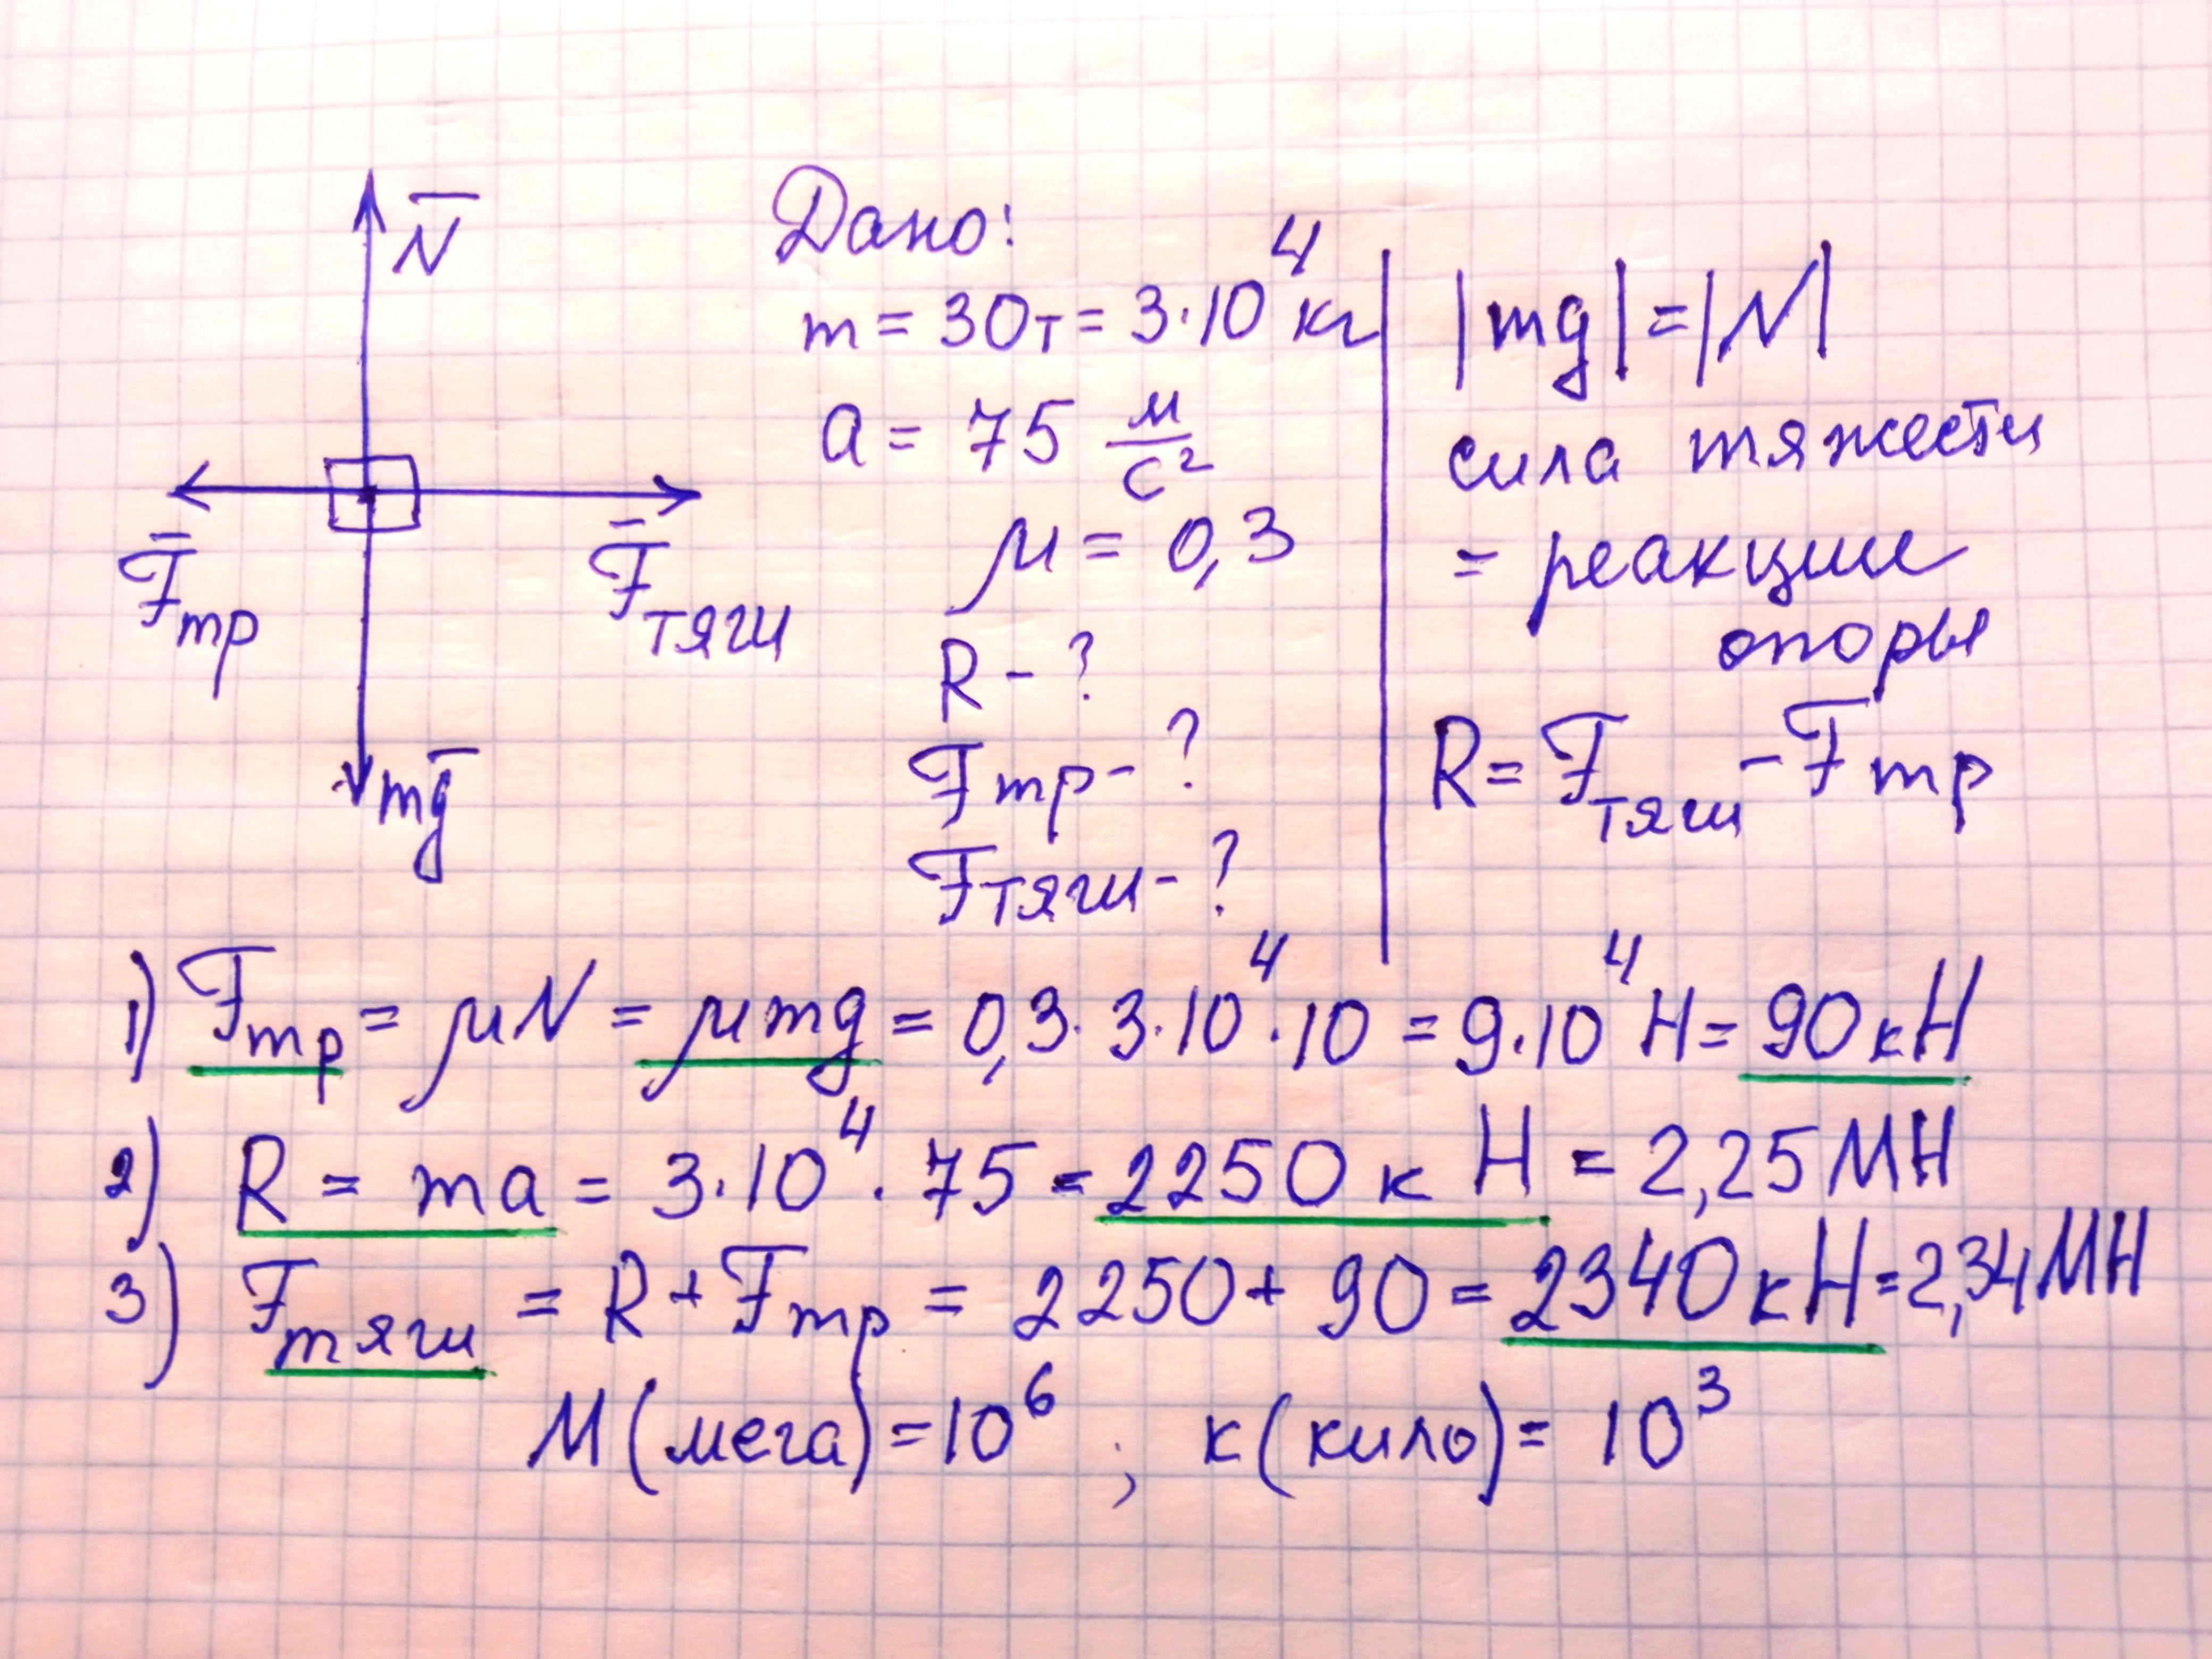 N̅
F̅тр
F̅тяги
mg̅
Дано:
m = 30т = 3·10⁴ кг
a = 75 м/с²
μ = 0,3
R - ?
Fтр - ?
Fтяги - ?
|mg| = |N|
сила тяжести
= реакции
опоры
R = Fтяги - Fтр
1) Fтр = μN = μmg = 0,3·3·10⁴·10 = 9·10⁴ Н = 90 кН
2) R = ma = 3·10⁴·75 = 2250 к Н = 2,25 МН
3) Fтяги = R + Fтр = 2250 + 90 = 2340 кН = 2,34 МН
М (мега) = 10⁶ ; к (кило) = 10³